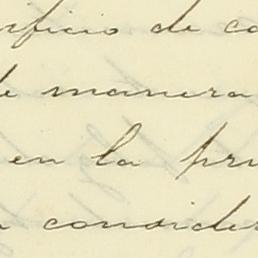 rificio de co
de manera
en la pru
a consider